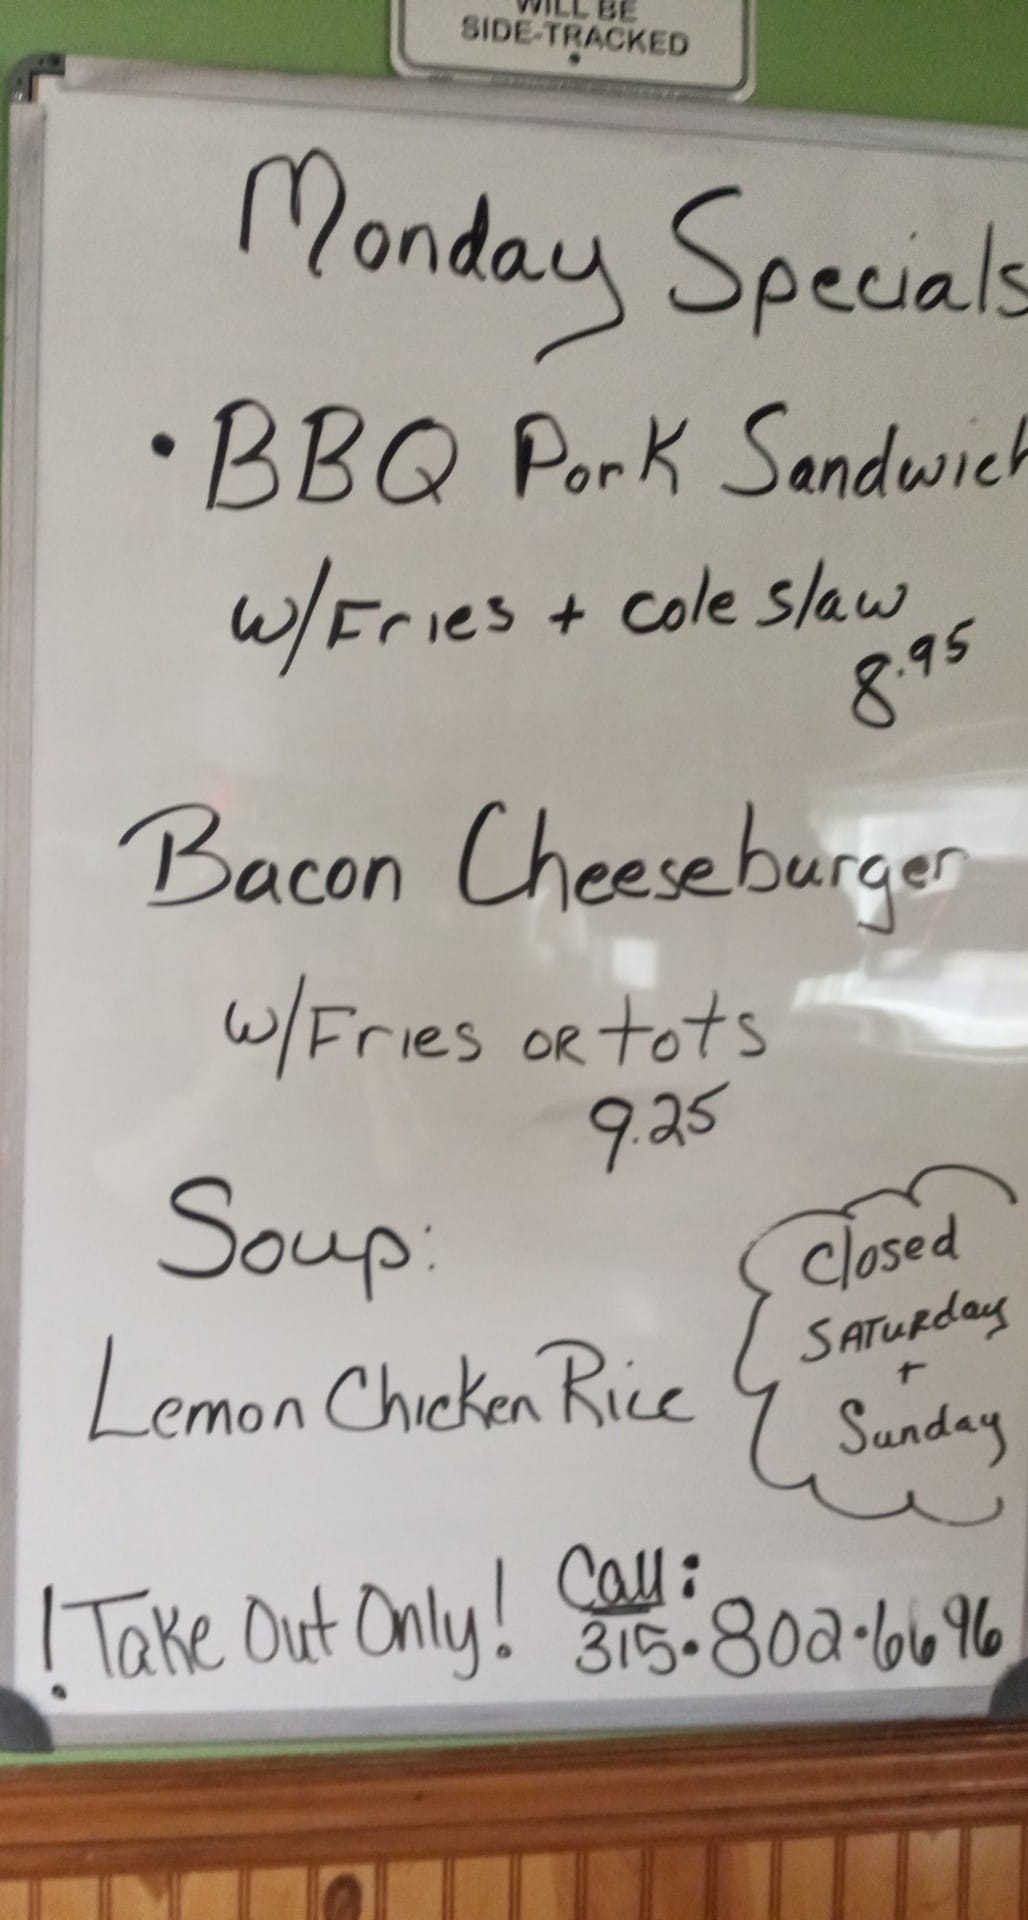 WILL BE
SIDE-TRACKED
Monday Specials
• BBQ Pork Sandwich
w/Fries + cole slaw
8.95
Bacon Cheeseburger
w/Fries OR tots
9.25
Soup:
Lemon Chicken Rice
Closed
SATURday
+
Sunday
! Take Out Only! Call:
315•802•6696